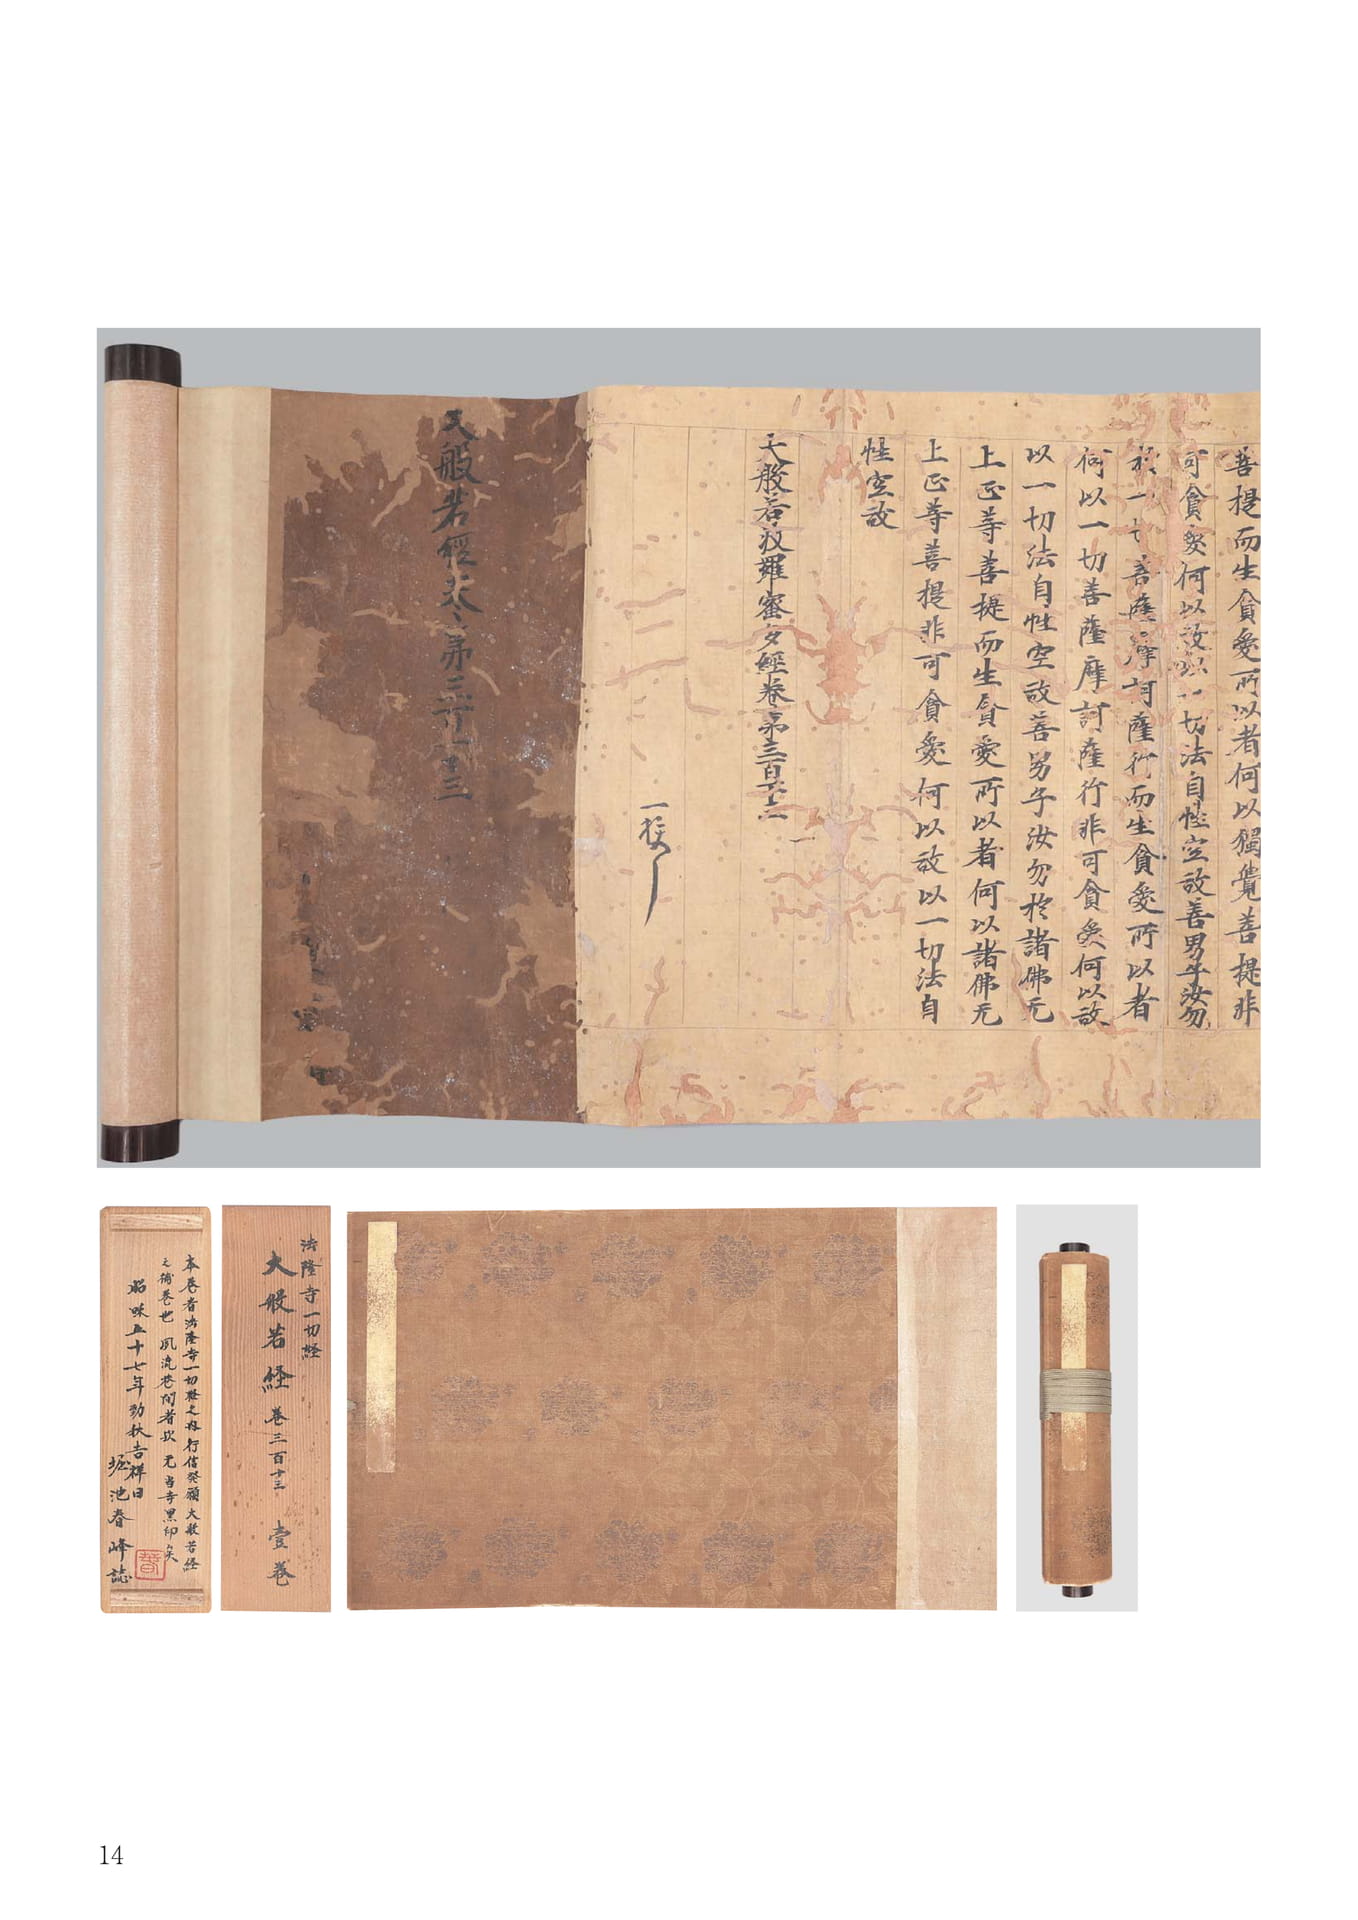 菩提而生貪愛所以者何以獨覺菩提非
可貪愛何以故以一切法自性空故善男子汝勿
於一切菩薩摩訶薩行而生貪愛所以者
何以一切菩薩摩訶薩行非可貪愛何以故
以一切法自性空故善男子汝勿於諸佛无
上正等菩提而生貪愛所以者何以諸佛无
上正等菩提非可貪愛何以故以一切法自
性空故
大般若波羅蜜多經卷第三百十三
一挍了
大般若經卷第三百一十三
本卷者法隆寺一切経之内行信発願大般若経
之補巻也 夙流巷間者欤 尤当寺黒印矣
昭和五十七年勁秋吉祥日
堀池春峰誌
法隆寺一切経
大般若経 巻三百十三 壹巻
14